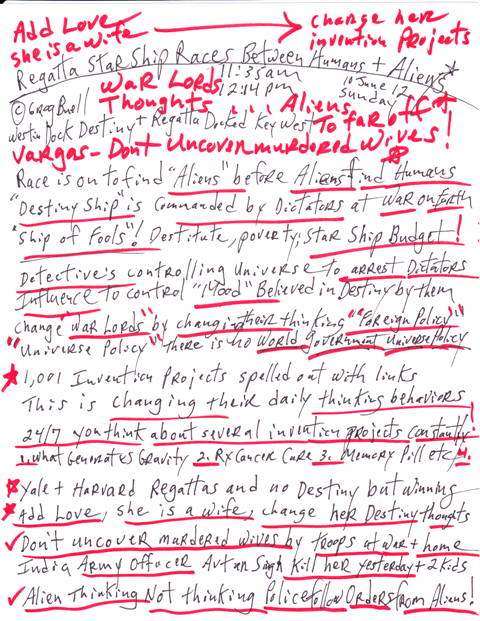 Add Love
she is a wife
change her
invention Projects
Regatta Star Ship Races Between Humans + Aliens
War Lords 11:35am
Thoughts 12:14pm
10 June 12
Sunday
Aliens
© Greg Buell
Westin Dock Destiny + Regatta Docked Key West To far off
Vargas - Don't Uncover murdered Wives!
Race is on to find "Aliens" before Aliens find Humans
"Destiny Ship" is commanded by Dictators at war on Earth
"Ship of Fools"! Destitute, poverty, Star Ship Budget!
Detective's controlling Universe to arrest Dictators
Influence to control "Mood" Believed in Destiny by them
change "War Lords" by changing their thinking "Foreign Policy"
"Universe Policy" there is no World Government Universe Policy
1,001 Invention Projects spelled out with links
This is changing their daily thinking behaviors
24/7 you think about several invention projects constantly!
1. What Generates Gravity 2. Rx Cancer Cure 3. Memory Pill etc
Yale + Harvard Regattas and no Destiny but winning
Add Love, she is a wife, change her Destiny thoughts
Don't uncover murdered wives by troops at war + home
India Army Officer Singh Kill her yesterday + 2 kids
Alien Thinking Not thinking Police follow Orders from Aliens!